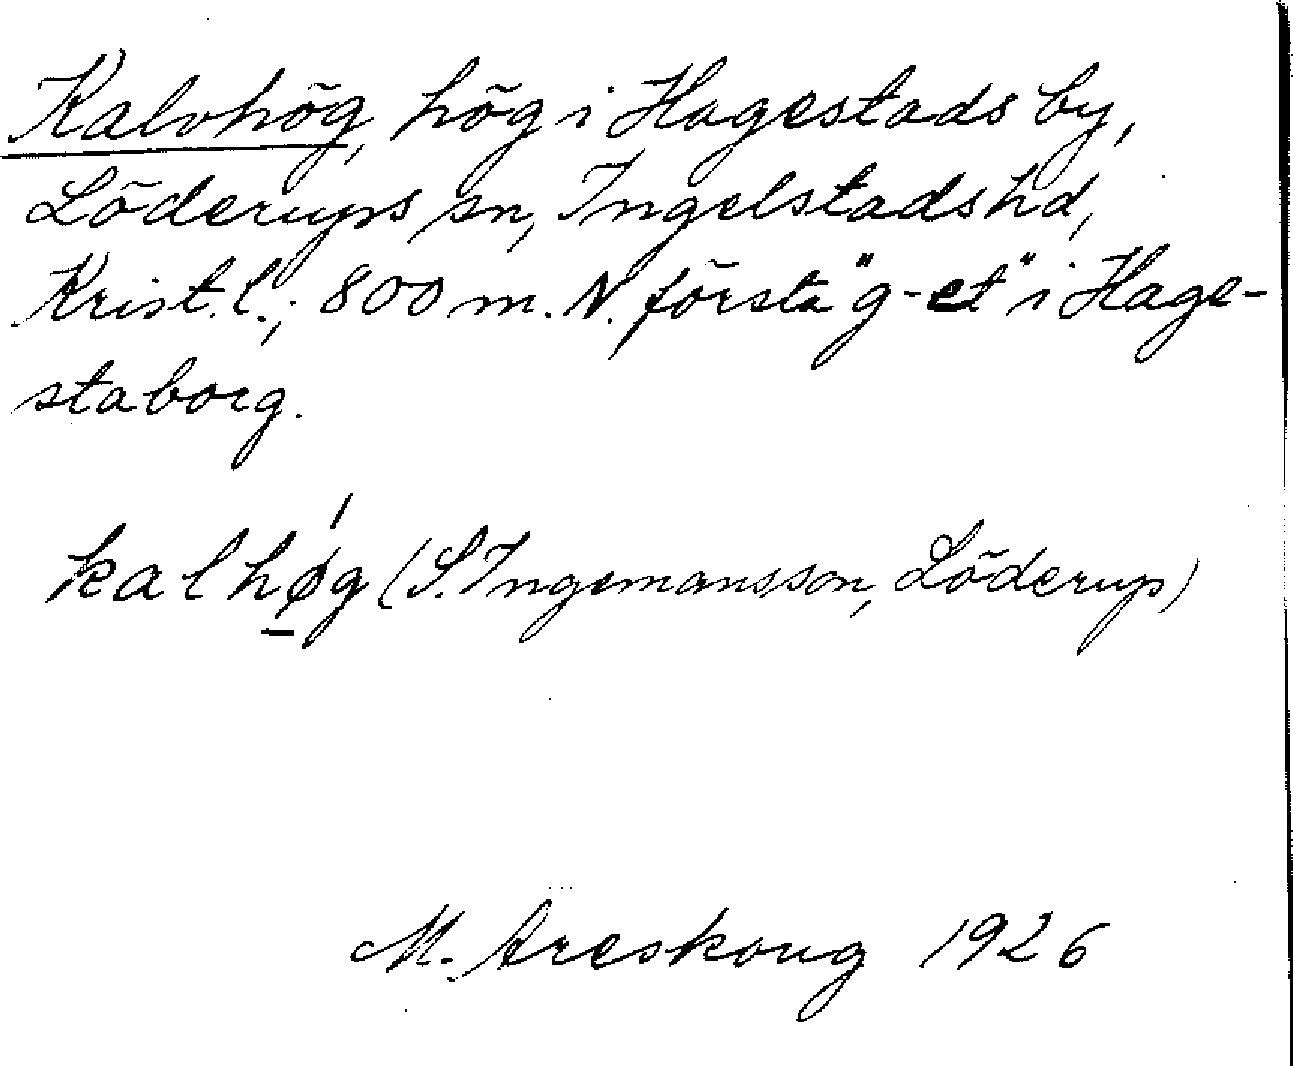 Kalvhög, hög i Hagestads by,
Löderups sn, Ingelstads hd,
Krist. l.; 800 m. N. första "g-et" i Hage-
staborg.
kalhǿ̱g (S. Ingemansson, Löderup)
M. Areskoug 1926